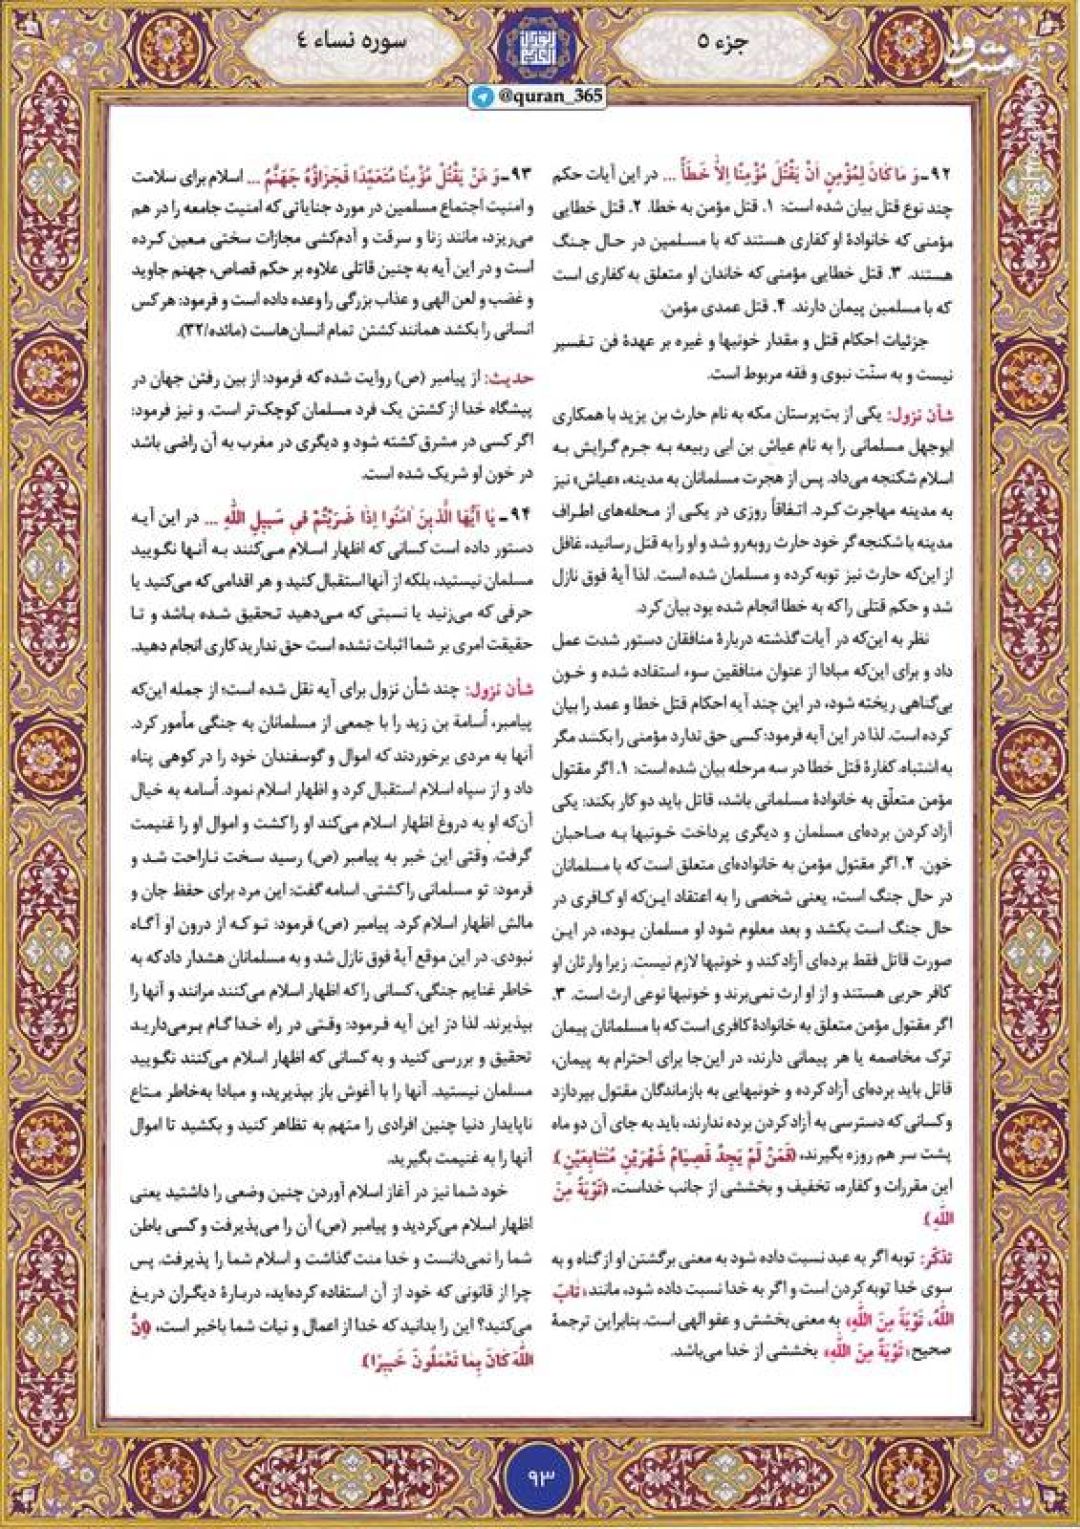 جزء ۵
سوره نساء ٤
مشرق
mashreghnews.ir
@quran_365
۹۲ـ وَ مَا كَانَ لِمُؤْمِنٍ اَنْ يَقْتُلَ مُؤْمِنًا اِلاّٰ خَطَأً ... در این آیات حکم
چند نوع قتل بیان شده است: ۱. قتل مؤمن به خطا. ۲. قتل خطایی
مؤمنی که خانوادهٔ او کفاری هستند که با مسلمین در حال جنگ
هستند. ۳. قتل خطایی مؤمنی که خاندان او متعلق به کفاری است
که با مسلمین پیمان دارند. ۴. قتل عمدی مؤمن.
جزئیات احکام قتل و مقدار خونبها و غیره بر عهدهٔ فن تفسیر
نیست و به سنّت نبوی و فقه مربوط است.
شأن نزول: یکی از بت‌پرستان مکه به نام حارث بن یزید با همکاری
ابوجهل مسلمانی را به نام عیاش بن ابی ربیعه به جرم گرایش به
اسلام شکنجه می‌داد. پس از هجرت مسلمانان به مدینه، «عیاش» نیز
به مدینه مهاجرت کرد. اتفاقاً روزی در یکی از محله‌های اطراف
مدینه با شکنجه گر خود حارث روبه‌رو شد و او را به قتل رسانید، غافل
از این‌که حارث نیز توبه کرده و مسلمان شده است. لذا آیهٔ فوق نازل
شد و حکم قتلی را که به خطا انجام شده بود بیان کرد.
نظر به این‌که در آیات گذشته دربارهٔ منافقان دستور شدت عمل
داد و برای این‌که مبادا از عنوان منافقین سوء استفاده شده و خون
بی‌گناهی ریخته شود، در این چند آیه احکام قتل خطا و عمد را بیان
کرده است. لذا در این آیه فرمود: کسی حق ندارد مؤمنی را بکشد مگر
به اشتباه. کفارهٔ قتل خطا در سه مرحله بیان شده است: ۱. اگر مقتول
مؤمن متعلّق به خانوادهٔ مسلمانی باشد، قاتل باید دو کار بکند: یکی
آزاد کردن برده‌ای مسلمان و دیگری پرداخت خونبها به صاحبان
خون. ۲. اگر مقتول مؤمن به خانواده‌ای متعلق است که با مسلمانان
در حال جنگ است، یعنی شخصی را به اعتقاد این‌که او کافری در
حال جنگ است بکشد و بعد معلوم شود او مسلمان بوده، در این
صورت قاتل فقط برده‌ای آزاد کند و خونبها لازم نیست. زیرا وارثان او
کافر حربی هستند و از او ارث نمی‌برند و خونبها نوعی ارث است. ۳.
اگر مقتول مؤمن متعلق به خانوادهٔ کافری است که با مسلمانان پیمان
ترک مخاصمه یا هر پیمانی دارند، در این‌جا برای احترام به پیمان،
قاتل باید برده‌ای آزاد کرده و خونبهایی به بازماندگان مقتول بپردازد
و کسانی که دسترسی به آزاد کردن برده ندارند، باید به جای آن دو ماه
پشت سر هم روزه بگیرند، ﴿فَمَنْ لَمْ يَجِدْ فَصِيَامُ شَهْرَيْنِ مُتَتَابِعَيْنِ﴾.
این مقررات و کفاره، تخفیف و بخششی از جانب خداست، ﴿تَوْبَةً مِنَ
اللّٰهِ﴾.
تذکّر: توبه اگر به عبد نسبت داده شود به معنی برگشتن او از گناه و به
سوی خدا توبه کردن است و اگر به خدا نسبت داده شود، مانند «تٰابَ
اللّٰهُ، تَوْبَةً مِنَ اللّٰهِ» به معنی بخشش و عفو الهی است. بنابراین ترجمهٔ
صحیح «تَوْبَةً مِنَ اللّٰهِ» بخششی از خدا می‌باشد.
۹۳ـ وَ مَنْ يَقْتُلْ مُؤْمِنًا مُتَعَمِّدًا فَجَزَاؤُهُ جَهَنَّمُ ... اسلام برای سلامت
و امنیت اجتماع مسلمین در مورد جنایاتی که امنیت جامعه را در هم
می‌ریزد، مانند زنا و سرقت و آدم‌کشی مجازات سختی معین کرده
است و در این آیه به چنین قاتلی علاوه بر حکم قصاص، جهنم جاوید
و غضب و لعن الهی و عذاب بزرگی را وعده داده است و فرمود: هر کس
انسانی را بکشد همانند کشتن تمام انسان‌هاست (مائده/۳۲).
حدیث: از پیامبر (ص) روایت شده که فرمود: از بین رفتن جهان در
پیشگاه خدا از کشتن یک فرد مسلمان کوچک‌تر است. و نیز فرمود:
اگر کسی در مشرق کشته شود و دیگری در مغرب به آن راضی باشد
در خون او شریک شده است.
۹۴ـ يٰا اَيُّهَا الَّذِينَ اٰمَنُوا اِذٰا ضَرَبْتُمْ فِي سَبِيلِ اللّٰهِ ... در این آیه
دستور داده است کسانی که اظهار اسلام می‌کنند به آنها نگویید
مسلمان نیستید، بلکه از آنها استقبال کنید و هر اقدامی که می‌کنید یا
حرفی که می‌زنید یا نسبتی که می‌دهید تحقیق شده باشد و تا
حقیقت امری بر شما اثبات نشده است حق ندارید کاری انجام دهید.
شأن نزول: چند شأن نزول برای آیه نقل شده است؛ از جمله این‌که
پیامبر، اُسامة بن زید را با جمعی از مسلمانان به جنگی مأمور کرد.
آنها به مردی برخوردند که اموال و گوسفندان خود را در کوهی پناه
داد و از سپاه اسلام استقبال کرد و اظهار اسلام نمود. اُسامه به خیال
آن‌که او به دروغ اظهار اسلام می‌کند او را کشت و اموال او را غنیمت
گرفت. وقتی این خبر به پیامبر (ص) رسید سخت ناراحت شد و
فرمود: تو مسلمانی را کشتی. اسامه گفت: این مرد برای حفظ جان و
مالش اظهار اسلام کرد. پیامبر (ص) فرمود: تو که از درون او آگاه
نبودی. در این موقع آیهٔ فوق نازل شد و به مسلمانان هشدار داد که به
خاطر غنایم جنگی، کسانی را که اظهار اسلام می‌کنند مرانند و آنها را
بپذیرند. لذا در این آیه فرمود: وقتی در راه خدا گام برمی‌دارید
تحقیق و بررسی کنید و به کسانی که اظهار اسلام می‌کنند نگویید
مسلمان نیستید. آنها را با آغوش باز بپذیرید، و مبادا به‌خاطر متاع
ناپایدار دنیا چنین افرادی را متهم به تظاهر کنید و بکشید تا اموال
آنها را به غنیمت بگیرید.
خود شما نیز در آغاز اسلام آوردن چنین وضعی را داشتید یعنی
اظهار اسلام می‌کردید و پیامبر (ص) آن را می‌پذیرفت و کسی باطن
شما را نمی‌دانست و خدا منت گذاشت و اسلام شما را پذیرفت. پس
چرا از قانونی که خود از آن استفاده کرده‌اید، دربارهٔ دیگران دریغ
می‌کنید؟ این را بدانید که خدا از اعمال و نیات شما باخبر است، ﴿اِنَّ
اللّٰهَ كَانَ بِمَا تَعْمَلُونَ خَبِيرًا﴾.
۹۳